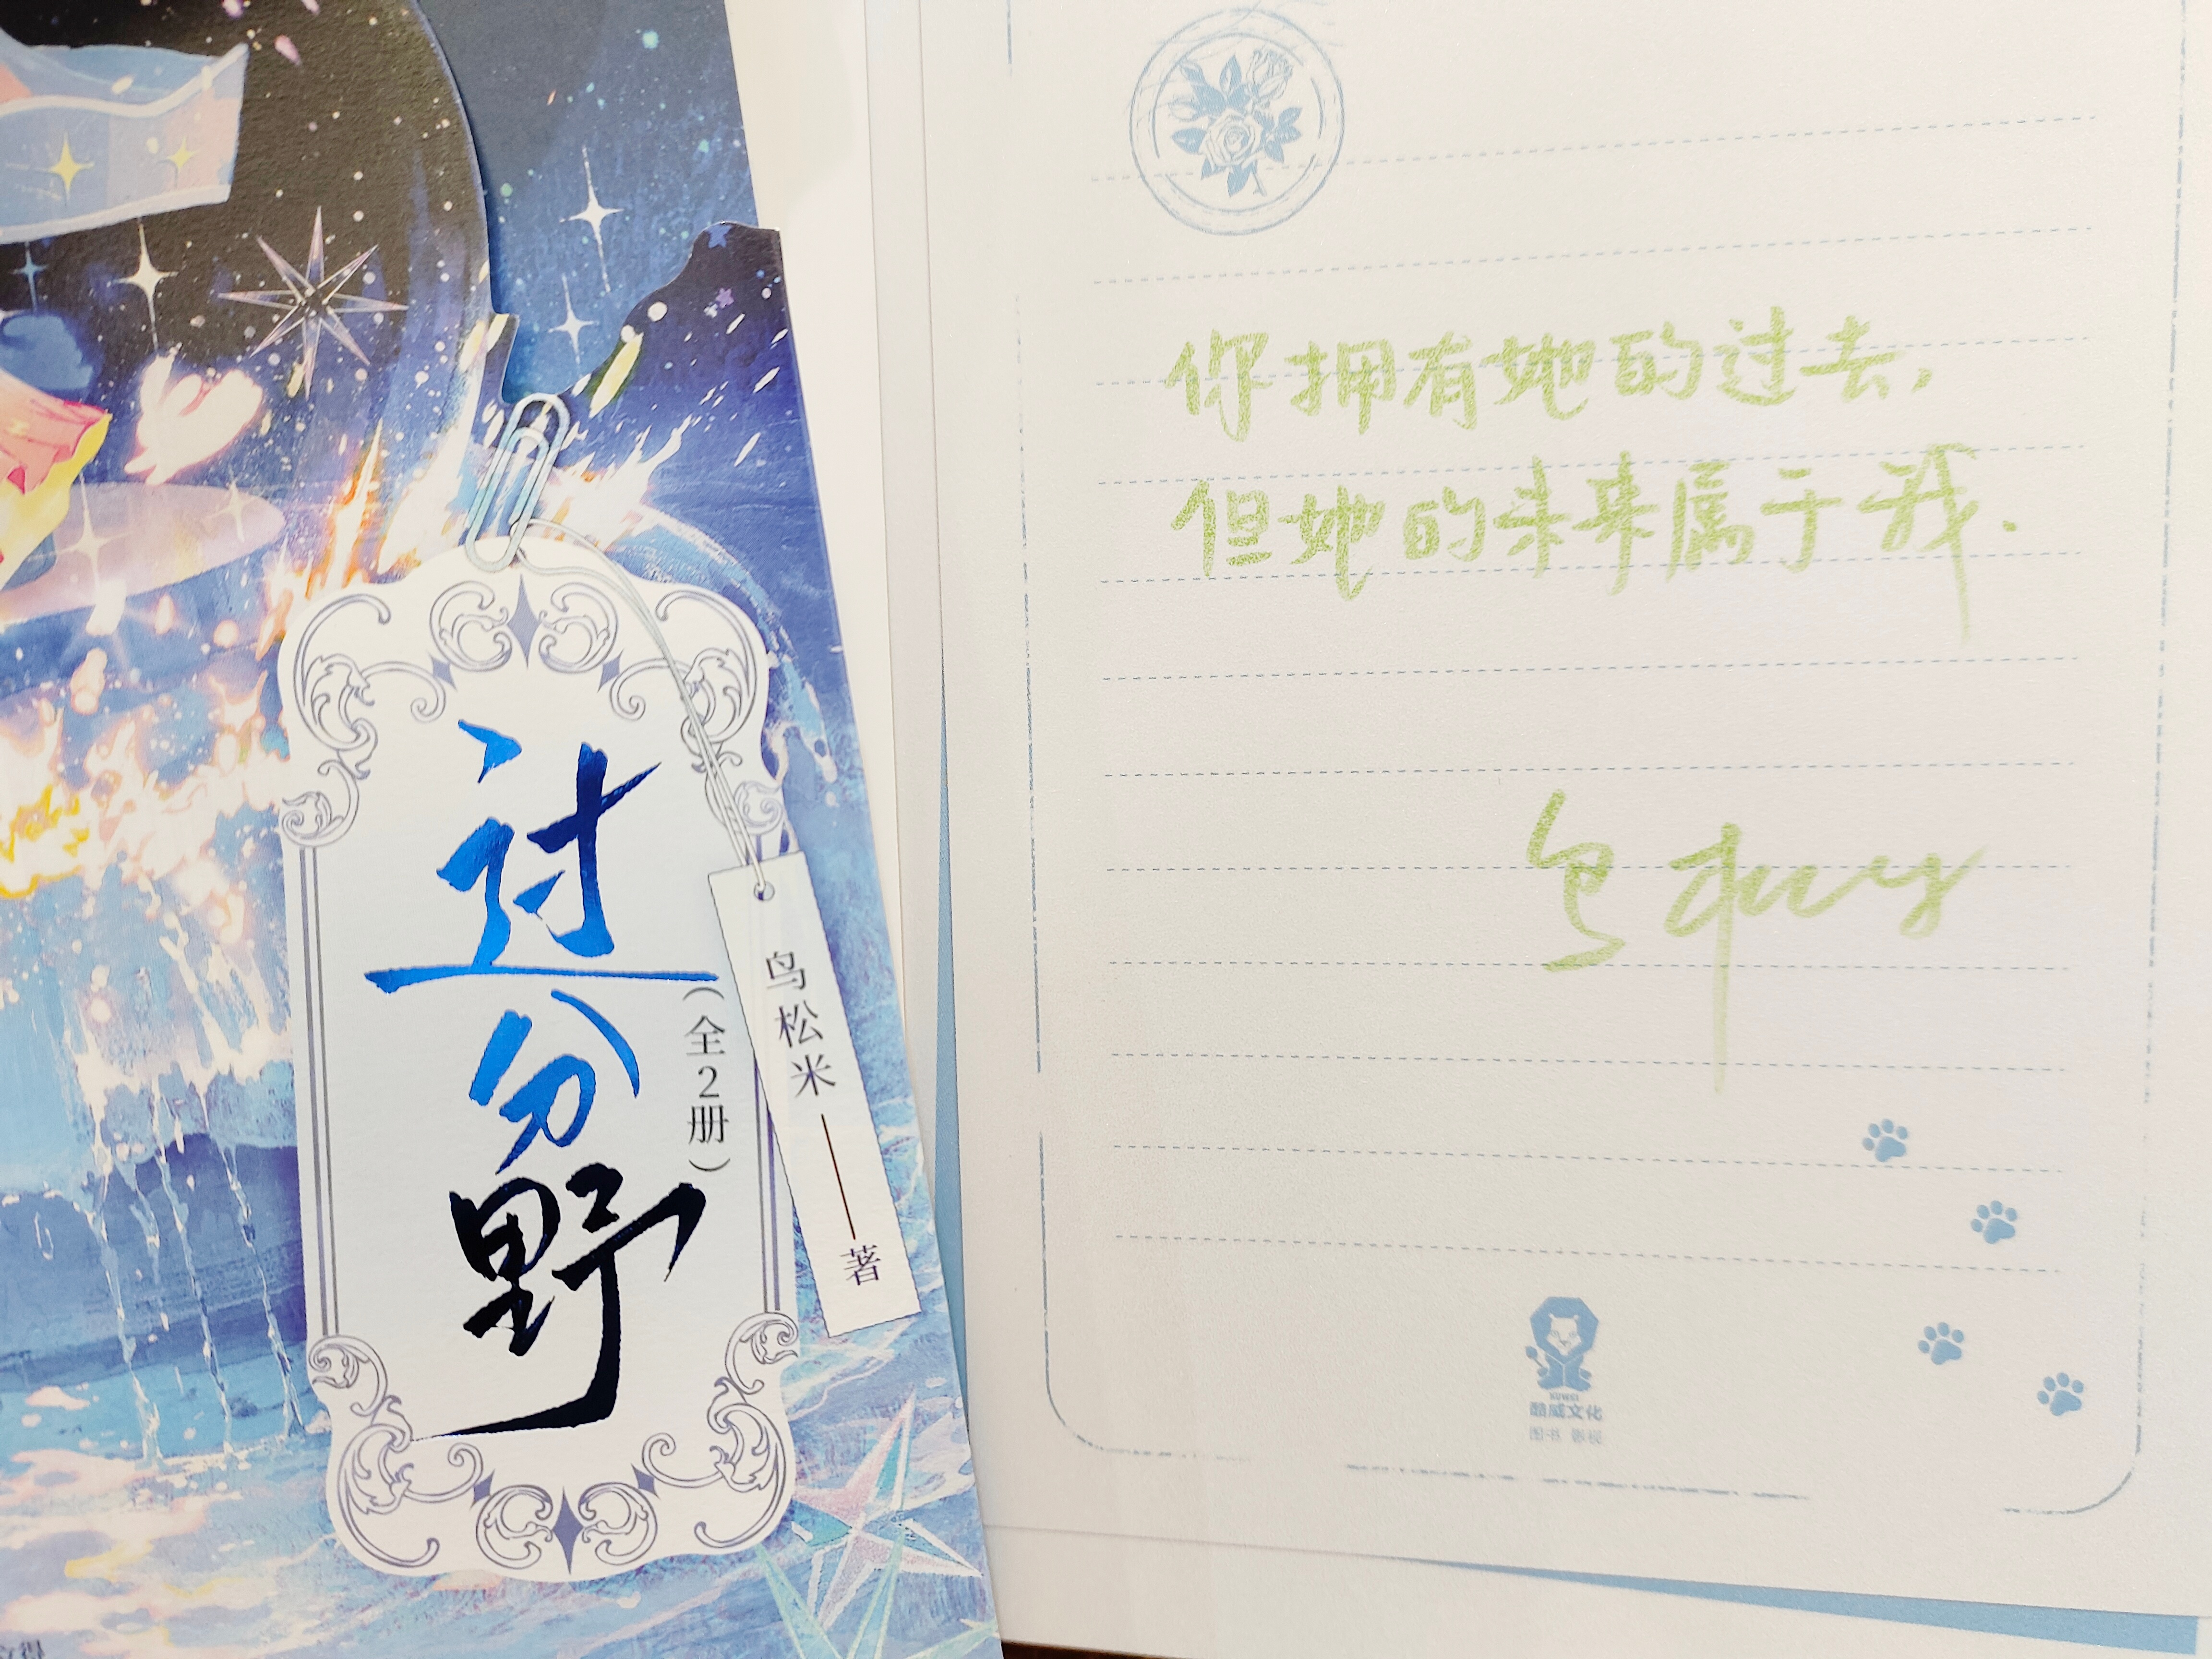 过分野
（全2册）
鸟松米——著
你拥有她的过去，
但她的未来属于我.
KUWEI
酷威文化
图书 影视